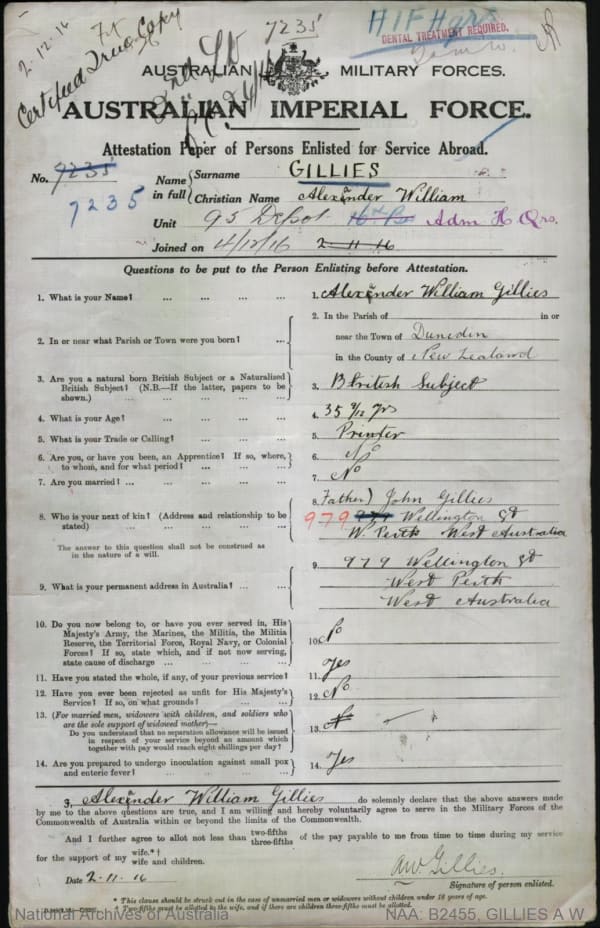 2-12-16
Certified True Copy
7235
AIF Hqrs
DENTAL TREATMENT REQUIRED.
AUSTRALIAN MILITARY FORCES.
AUSTRALIAN IMPERIAL FORCE.
Attestation Paper of Persons Enlisted for Service Abroad.
No. 7235
7235
Name in full
Surname GILLIES
Christian Name Alexander William
Unit 95 Depot Adm H Qrs.
Joined on 4/12/16 2-11-16
Questions to be put to the Person Enlisting before Attestation.
1. What is your Name? ... ... ... ... 1. Alexander William Gillies
2. In or near what Parish or Town were you born? ... 2. In the Parish of in or
near the Town of Dunedin
in the County of New Zealand
3. Are you a natural born British Subject or a Naturalized
British Subject? (N.B.—If the latter, papers to be
shown.) ... ... ... ... 3. British Subject
4. What is your Age? ... ... ... ... 4. 35 9/12 yrs
5. What is your Trade or Calling? ... ... ... 5. Printer
6. Are you, or have you been, an Apprentice? If so, where,
to whom, and for what period? ... ... ... 6. No
7. Are you married? ... ... ... ... 7. No
8. Who is your next of kin? (Address and relationship to be
stated) ... ... ... ... 8. Father) John Gillies
979 Wellington St
W. Perth West Australia
The answer to this question shall not be construed as
in the nature of a will.
9. What is your permanent address in Australia? ... ... 9. 979 Wellington St
West Perth
West Australia
10. Do you now belong to, or have you ever served in, His
Majesty's Army, the Marines, the Militia, the Militia
Reserve, the Territorial Force, Royal Navy, or Colonial
Forces? If so, state which, and if not now serving,
state cause of discharge ... ... ... 10. No
11. Have you stated the whole, if any, of your previous service? 11. Yes
12. Have you ever been rejected as unfit for His Majesty's
Service? If so, on what grounds? ... ... 12. No.
13. (For married men, widowers with children, and soldiers who
are the sole support of widowed mother)—
Do you understand that no separation allowance will be issued
in respect of your service beyond an amount which
together with pay would reach eight shillings per day? 13.
14. Are you prepared to undergo inoculation against small pox
and enteric fever? ... ... ... ... 14. Yes
I, Alexander William Gillies do solemnly declare that the above answers made
by me to the above questions are true, and I am willing and hereby voluntarily agree to serve in the Military Forces of the
Commonwealth of Australia within or beyond the limits of the Commonwealth.
And I further agree to allot not less than two-fifths three-fifths of the pay payable to me from time to time during my service
for the support of my wife.*† wife and children.
Date 2-11-16
AW. Gillies.
Signature of person enlisted.
* This clause should be struck out in the case of unmarried men or widowers without children under 18 years of age.
† Two-fifths must be allotted to the wife, and if there are children three-fifths must be allotted.
National Archives of Australia
NAA: B2455, GILLIES A W